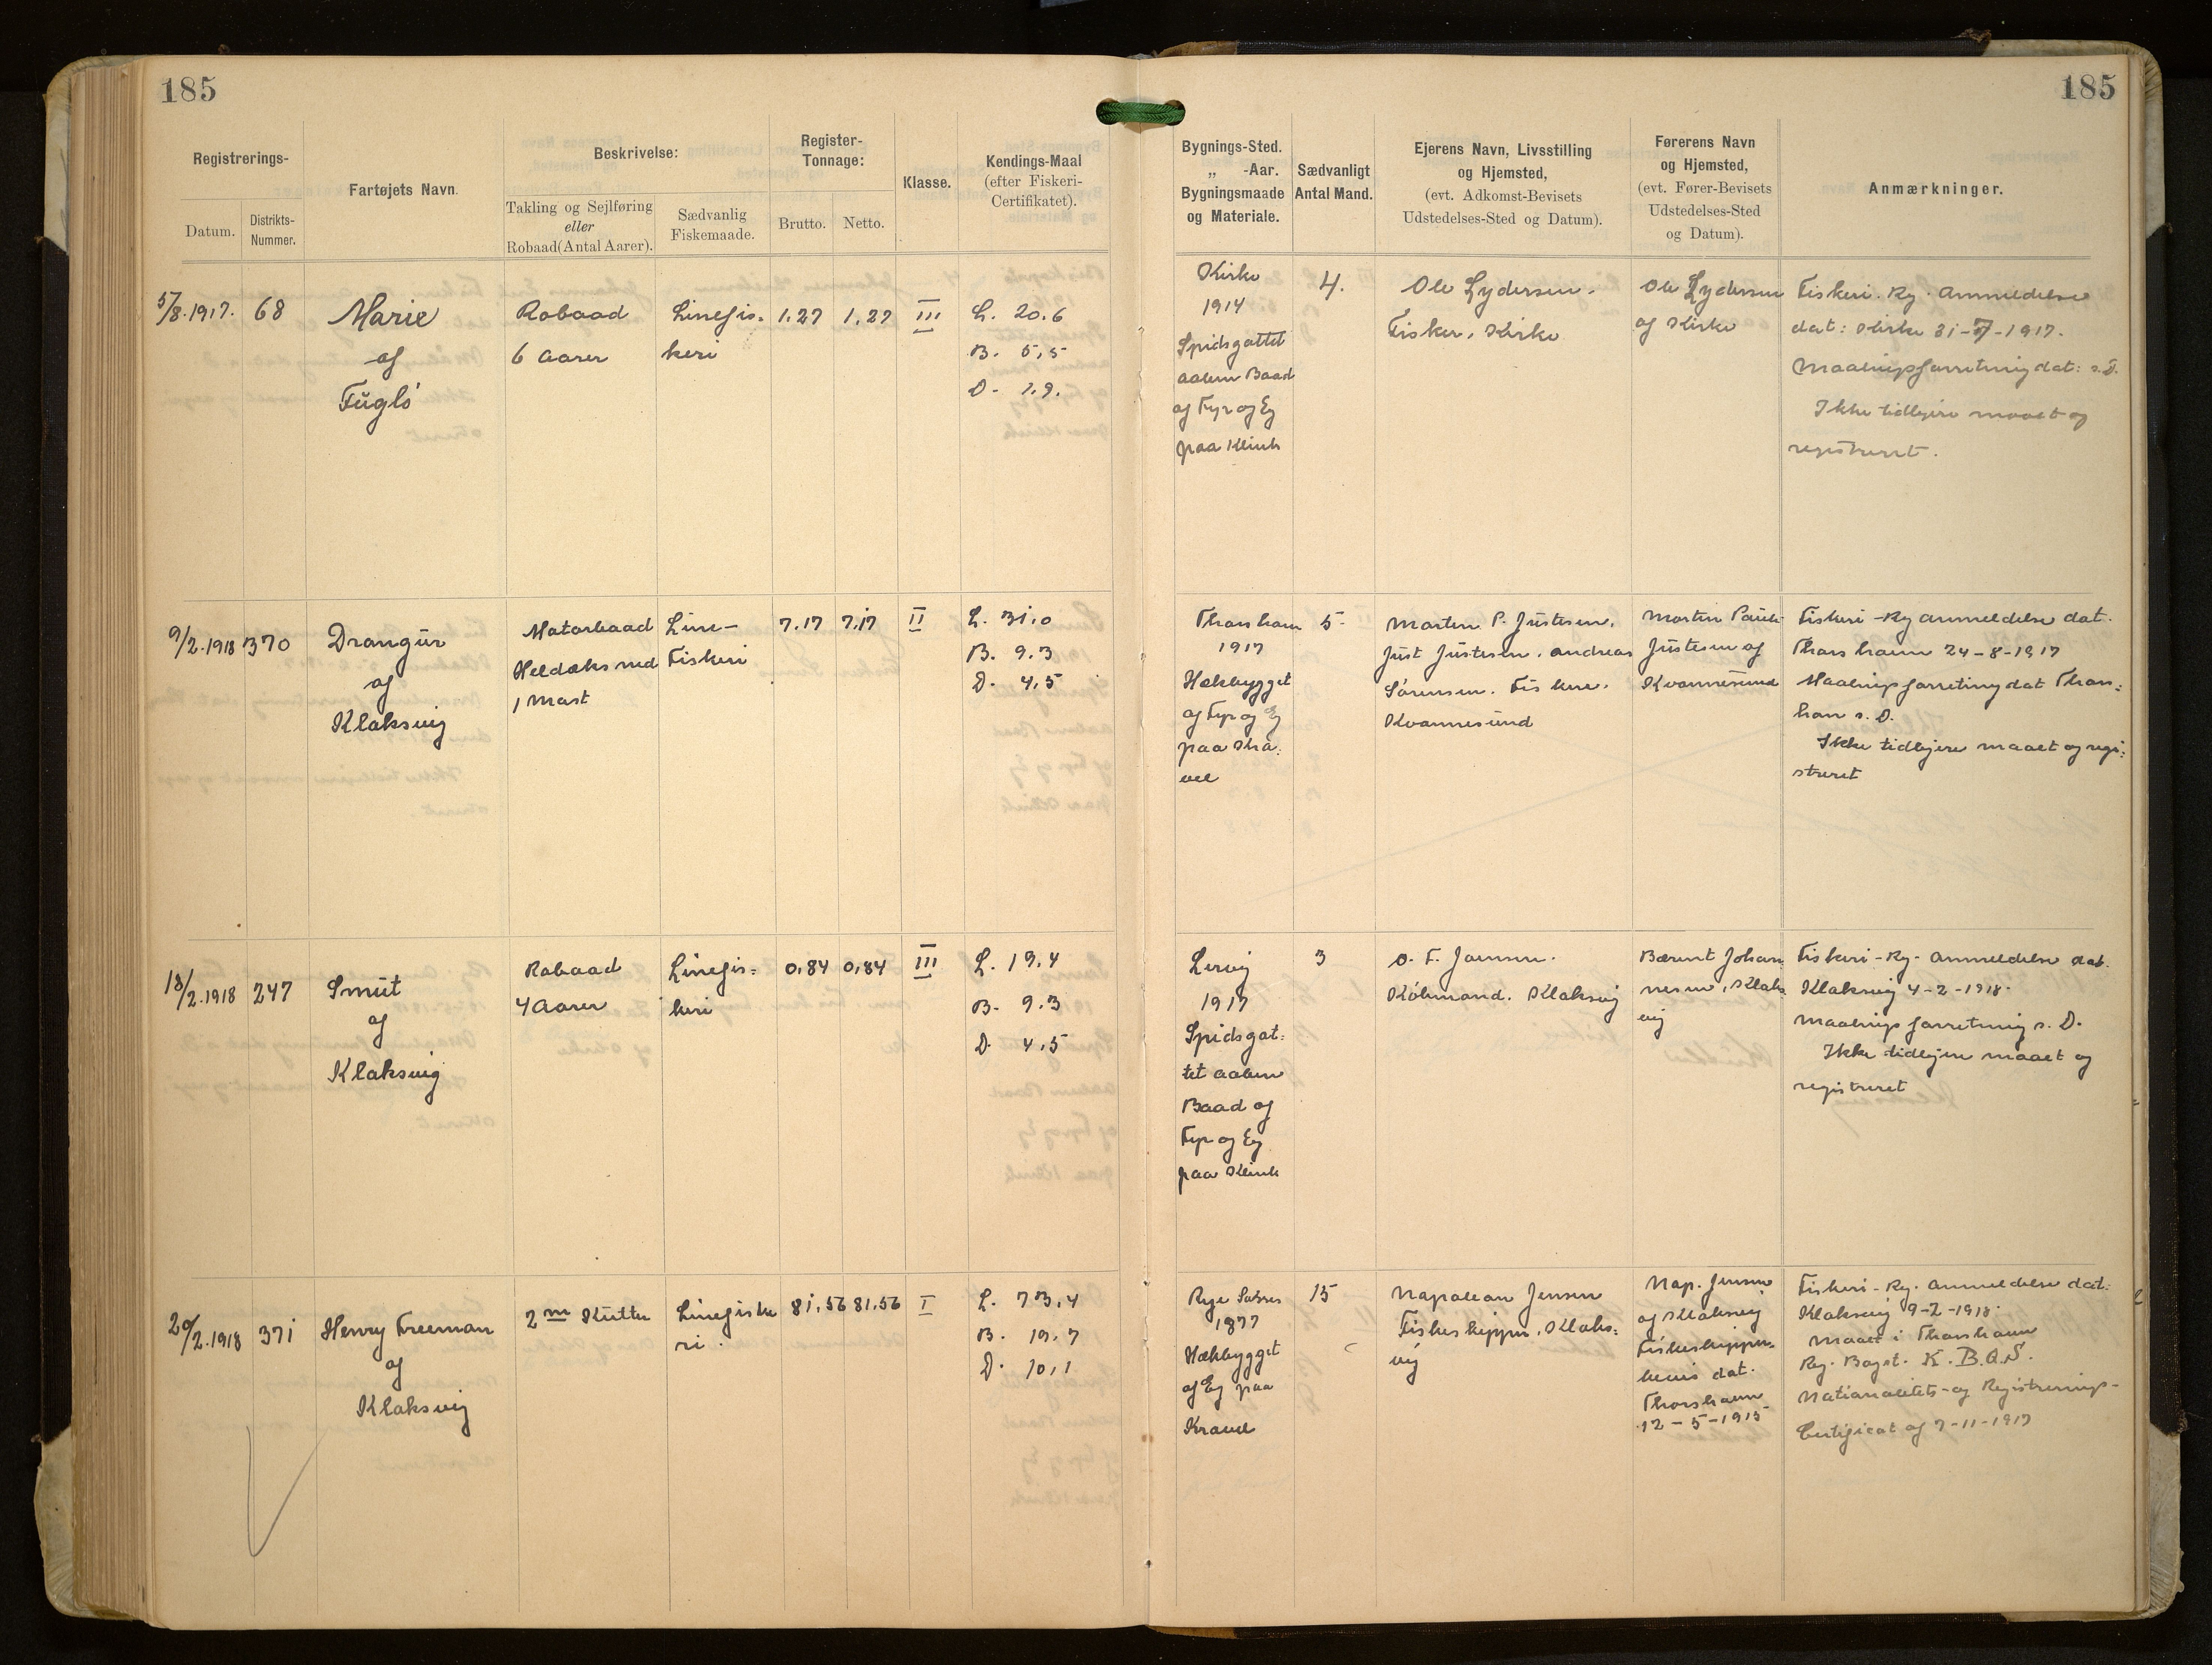 185
185
Registrerings-
Datum.
Distrikts-
Nummer.
Fartøjets Navn.
Beskrivelse:
Takling og Sejlføring
eller
Robaad (Antal Aarer).
Sædvanlig
Fiskemaade.
Register-
Tonnage:
Brutto.
Netto.
Klasse.
Kendings-Maal
(efter Fiskeri-
Certifikatet).
Bygnings-Sted.
„ -Aar.
Bygningsmaade
og Materiale.
Sædvanligt
Antal Mand.
Ejerens Navn, Livsstilling
og Hjemsted,
(evt. Adkomst-Bevisets
Udstedelses-Sted og Datum).
Førerens Navn
og Hjemsted,
(evt. Fører-Bevisets
Udstedelses-Sted
og Datum).
Anmærkninger.
5/8.1917.
68
Marie
af
Fuglö
Robaad
6 Aarer
Linefis-
keri
1,27
1,27
III
L. 20.6
B. 5,5
D. 1.9.
Kirke
1914
Spidsgattet
aaben Baad
af Fyr og Eg
paa Klink
4.
Ole Lydersen.
Fisker, Kirke
Ole Lydersen
af Kirke
Fiskeri-Rg. Anmeldelse
dat: Kirke 31-7-1917.
Maalingsforretning dat: s.D.
Ikke tidligere maalt og
registreret.
9/2.1918
370
Drangur
af
Klaksvig
Motorbaad
Heldæks med
1 Mast
Line-
Fiskeri
7.17
7.17
II
L. 31.0
B. 9.3
D. 4,5
Thorshavn
1917
Hækbygget
af Fyr og Eg
paa Kra-
vel
5
Morten P. Justesen,
Just Justesen, Andreas
Sörensen. Fiskere.
Kvannesund
Morten Paule
Justesen af
Kvannesund
Fiskeri-Rg Anmeldelse dat.
Thorshavn 24-8-1917
Maalingsforretning dat Thors-
havn s.D.
Ikke tidligere maalt og regi-
streret
18/2.1918
247
Smut
af
Klaksvig
Robaad
4 Aarer
Linefis-
keri
0,84
0,84
III
L. 19.4
B. 9.3
D. 4,5
Lervig
1917
Spidsgat-
tet aaben
Baad af
Fyr og Eg
paa Klink
3
O. F. Joensen.
Köbmand. Klaksvig
Bærent Johan
nesen, Klaks
vig
Fiskeri-Rg- Anmeldelse dat.
Klaksvig 4-2-1918.
Maalingsforretning s. D.
Ikke tidligere maalt og
registreret
20/2.1918
371
Henry Freeman
af
Klaksvig
2 m Kutter
Linefiske
ri.
81,56
81.56
I
L. 73,4
B. 19.7
D. 10,1
Rye Sussex
1877
Hækbygget
af Eg paa
Kravel
15
Napoleon Jensen
Fiskeskipper, Klaks-
vig
Nap. Jensen
af Klaksvig
Fiskeskipper-
bevis dat.
Thorshavn
12-5-1915
Fiskeri-Rg. Anmeldelse dat.
Klaksvig 9-2-1918.
Maalt i Thorshavn
Rg. Bogst. K. B. Q. S.
Nationalitets-og Registrerings-
Certificat af 7-11-1917